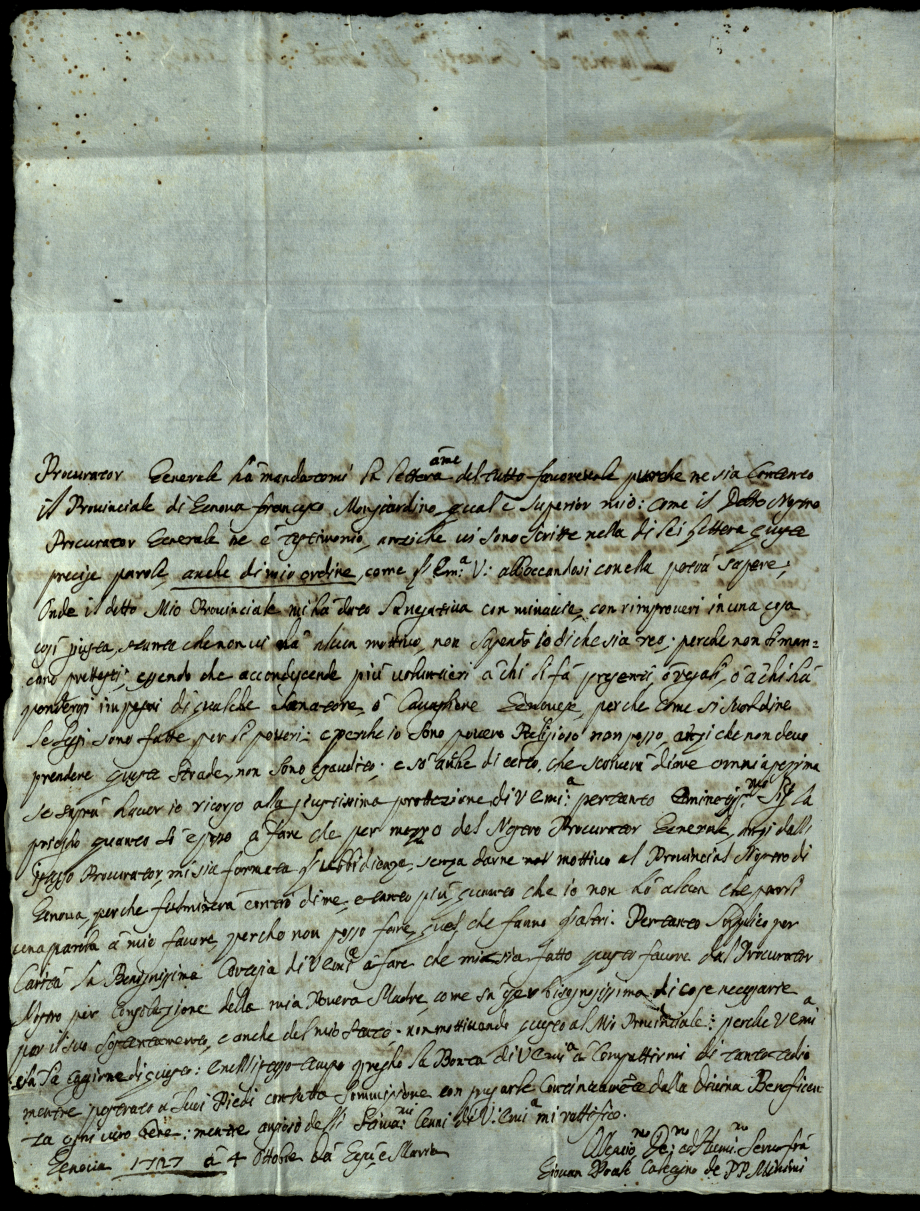 Procurator Generale hà mandatomi la lettera àme del tutto favorevole purche ne sia Contento
il Provinciale di Genova francesco Mongiardino, qual è Superior mio: come il Detto Nostro
Procurator Generale ne è testimonio, anziche vi sono Scritte nella di lei lettera queste
precise parole, anche di mio ordine, come Em.ª V: abboccandosi con ella potrà sapere;
Onde il detto Mio Provinciale mi hà dato la negativa con minaccie, con rimproveri in una cosa
così giusta, che non vi hà alcun mottivo, non sapendo io di che sia reo; perche non li man=
cano prettesti; essendo che accondescende più volontieri à chi li fà presenti, ò regali, ò à chi hà
impegni di qualche Senatore, ò Cavagliere Genovese, perche come si suol dire
le legi sono fatte per li poveri: e perche io sono povero Religioso non posso, anzi che non devo
prendere queste Strade, non sono esaudito; e sò anche di certo, che scriverà di me omnia pessima
se saprà haver io ricorso alla giustissima prottezione di V Emi:ª pertanto Eminentiss.mo Sig.r la
priegho quanto sò e posso à fare che per mezzo del Nostro Procurator Generale, anzi dall
istesso Procurator, mi sia formata l'ubbidienza, senza darne mottivo al Provincial Nostro di
Genova, perche fulminerà contro di me, e tanto più quanto che io non hò alcun che parli
una parola à mio favore, perche non posso fare quel che fanno gl'altri. Pertanto Supplico per
Carità la Benignissima Cortesia di V Emi.ª à fare che mi sia fatto questo favore dal Procurator
Nostro per Consolazione della mia Povera Madre, come bisognosissima di cose necessarie
per il suo sostentamento, e anche del mio stato. non mottivando questo al Mio Provinciale: perche V Emi.ª
sà la caggione di questo: e nell'istesso tempo priegho la Bontà di V Emi.ª à Compattirmi di tanto tedio
mentre prostrato a suoi Piedi con tutta Sommissione con pregarle Continuamente dalla Divina Beneficen
za ogni vero Bene: mentre ansioso de Cenni di V: Emi.ª mi rattifico.
Genova 1727 à 4 Ottobre Giesù e Maria
Servo frà
Giovan Calcagno de PP Minimi